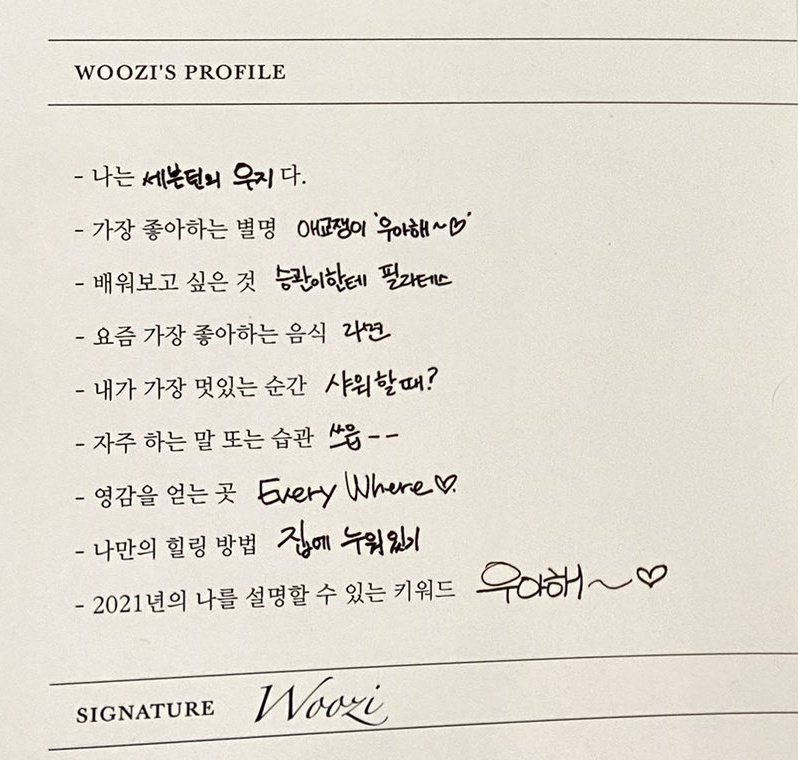 WOOZI'S PROFILE
- 나는 세븐틴의 우지 다.
- 가장 좋아하는 별명 애교쟁이 '우아해~♡'
- 배워보고 싶은 것 승관이한테 필라테스
- 요즘 가장 좋아하는 음식 라면
- 내가 가장 멋있는 순간 샤워할 때?
- 자주 하는 말 또는 습관 쓰읍--
- 영감을 얻는 곳 Every Where♡.
- 나만의 힐링 방법 집에 누워있기
- 2021년의 나를 설명할 수 있는 키워드 우아해~♡
SIGNATURE Woozi